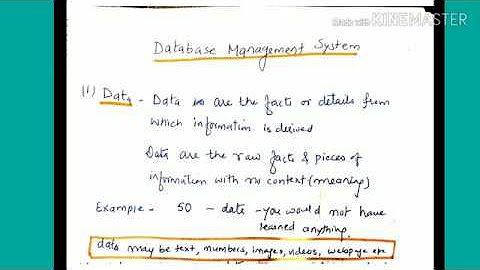 Made with KINEMASTER
Database Management System
(1) Data - Data are the facts or details from
which information is derived
Data are the raw facts & pieces of
information with no context (meaning)
Example - 50 - data - you would not have
learned anything.
data may be text, numbers, images, videos, webpage etc